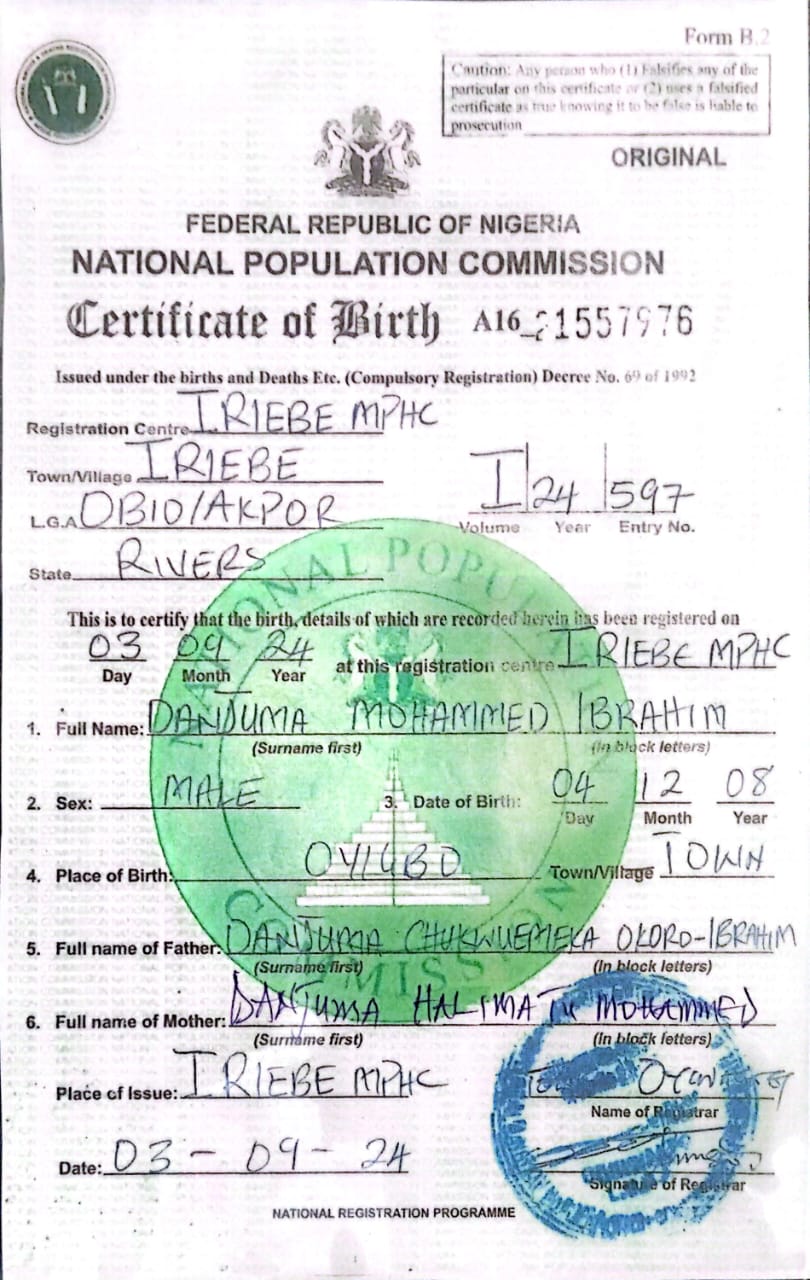 Form B.2
Caution: Any person who (1) Falsifies any of the
particular on this certificate or (2) uses a falsified
certificate as true knowing it to be false is liable to
prosecution
ORIGINAL
FEDERAL REPUBLIC OF NIGERIA
NATIONAL POPULATION COMMISSION
Certificate of Birth A16 21557976
Issued under the births and Deaths Etc. (Compulsory Registration) Decree No. 69 of 1992
Registration Centre IRIEBE MPHC
Town/Village IRIEBE
I 24 597
L.G.A OBIO/AKPOR
Volume Year Entry No.
State RIVERS
NATIONAL POPULATION COMMISSION
This is to certify that the birth, details of which are recorded herein has been registered on
03 09 24 at this registration centre IRIEBE MPHC
Day Month Year
1. Full Name: DANJUMA MOHAMMED IBRAHIM
(Surname first) (In block letters)
2. Sex: MALE 3. Date of Birth: 04 12 08
Day Month Year
4. Place of Birth: OYIGBO Town/Village TOWN
5. Full name of Father: DANJUMA CHUKWUEMEKA OKORO-IBRAHIM
(Surname first) (In block letters)
6. Full name of Mother: DANJUMA HALIMATU MOHAMMED
(Surname first) (In block letters)
Place of Issue: IRIEBE MPHC
Name of Registrar
Date: 03 - 09 - 24
Signature of Registrar
NATIONAL REGISTRATION PROGRAMME